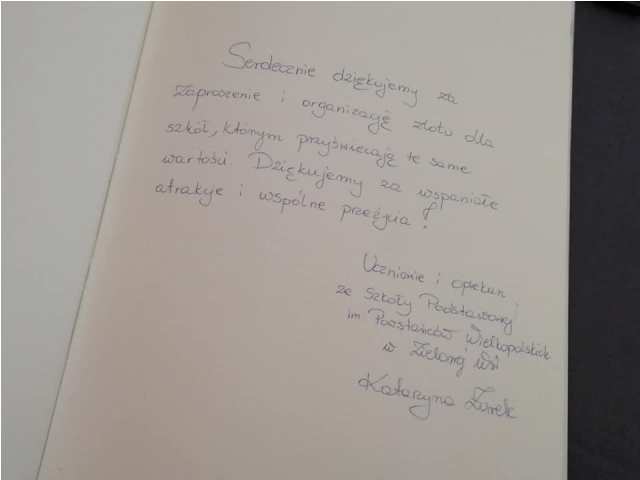 Serdecznie dziękujemy za
zaproszenie i organizację zlotu dla
szkół, którym przyświecają te same
wartości. Dziękujemy za wspaniałe
atrakcje i wspólne przeżycia!
Uczniowie i opiekun
ze Szkoły Podstawowej
im Powstańców Wielkopolskich
w Zielonej Wsi
Katarzyna Żurek